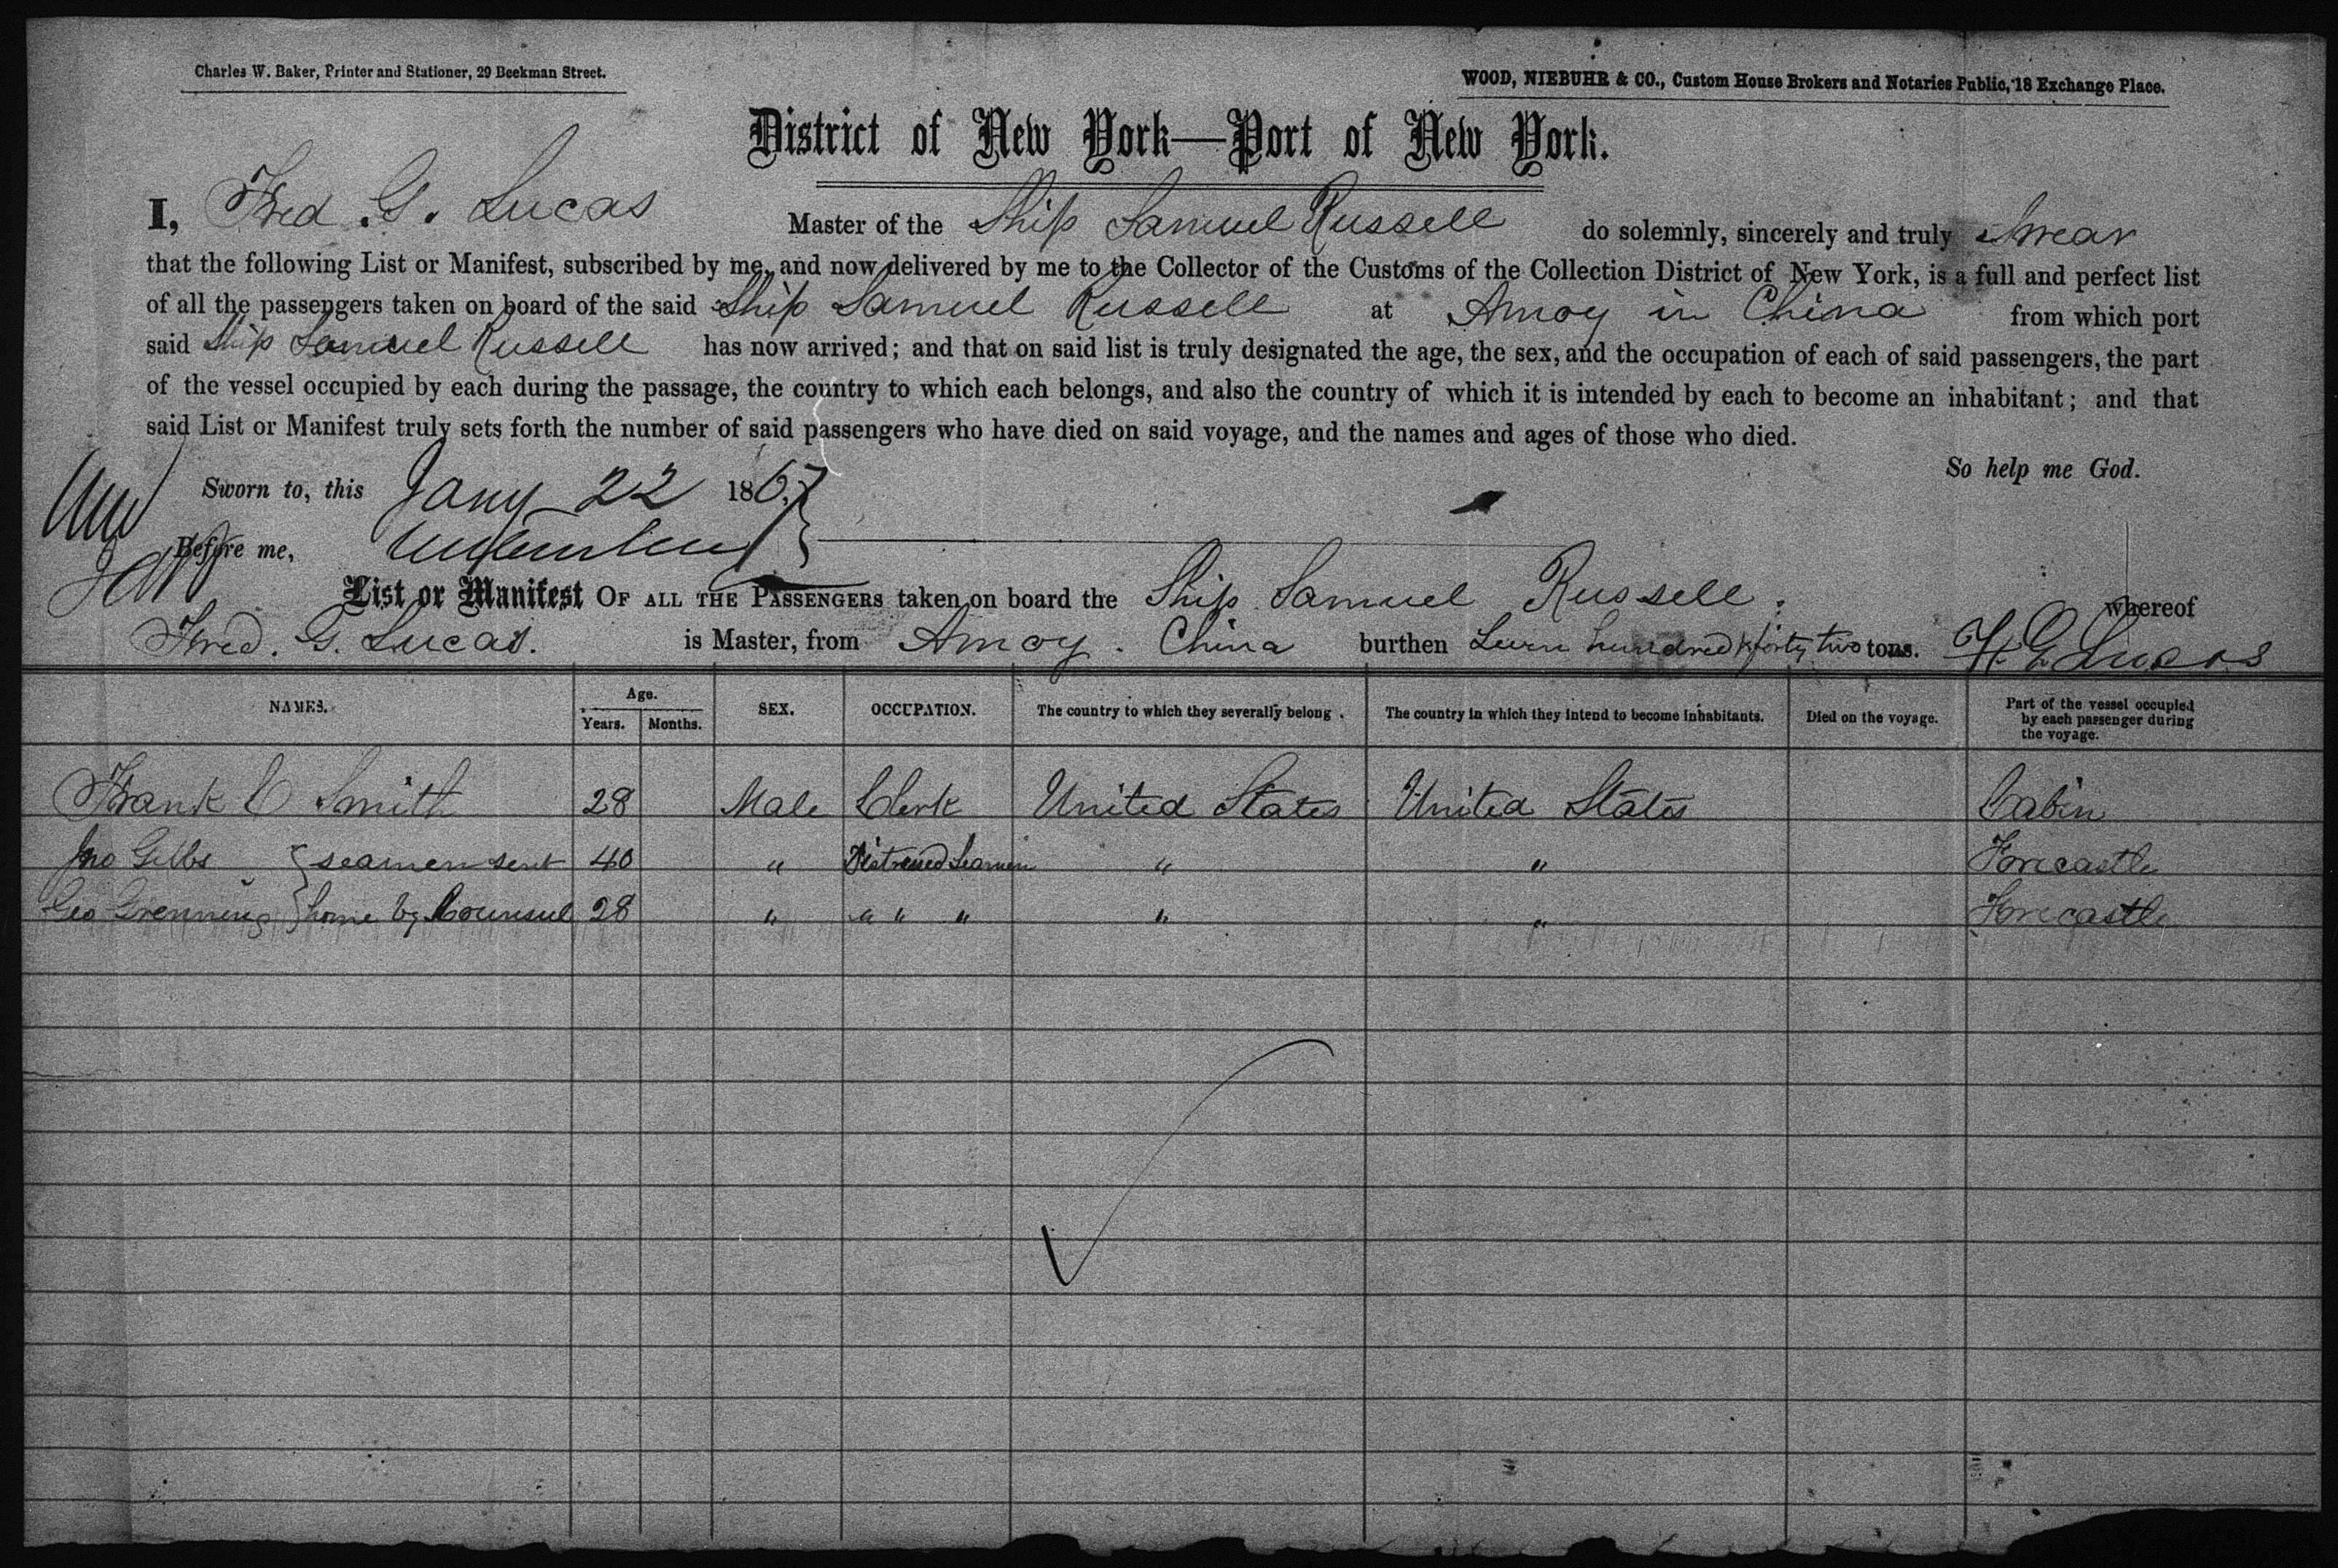 Charles W. Baker, Printer and Stationer, 29 Beekman Street.
WOOD, NIEBUHR & CO., Custom House Brokers and Notaries Public, 18 Exchange Place.
District of New York—Port of New York.
I, Fred. G. Lucas Master of the Ship Samuel Russell do solemnly, sincerely and truly Swear
that the following List or Manifest, subscribed by me, and now delivered by me to the Collector of the Customs of the Collection District of New York, is a full and perfect list
of all the passengers taken on board of the said Ship Samuel Russell at Amoy in China from which port
said Ship Samuel Russell has now arrived; and that on said list is truly designated the age, the sex, and the occupation of each of said passengers, the part
of the vessel occupied by each during the passage, the country to which each belongs, and also the country of which it is intended by each to become an inhabitant; and that
said List or Manifest truly sets forth the number of said passengers who have died on said voyage, and the names and ages of those who died.
So help me God.
Sworn to, this Jany 22 1867
Before me,
List or Manifest OF ALL THE PASSENGERS taken on board the Ship Samuel Russell. whereof
Fred. G. Lucas. is Master, from Amoy. China burthen hundred & forty two tons. F. G. Lucas
NAMES. Age. Years. Months. SEX. OCCUPATION. The country to which they severally belong. The country in which they intend to become inhabitants. Died on the voyage. Part of the vessel occupied by each passenger during the voyage.
Frank C Smith 28 Male Clerk United States United States Cabin
Jno Gibbs { seamen sent 40 " Distressed Seamen " " Forecastle
Geo Grenning { home by Counsul 28 " " " " " " Forecastle